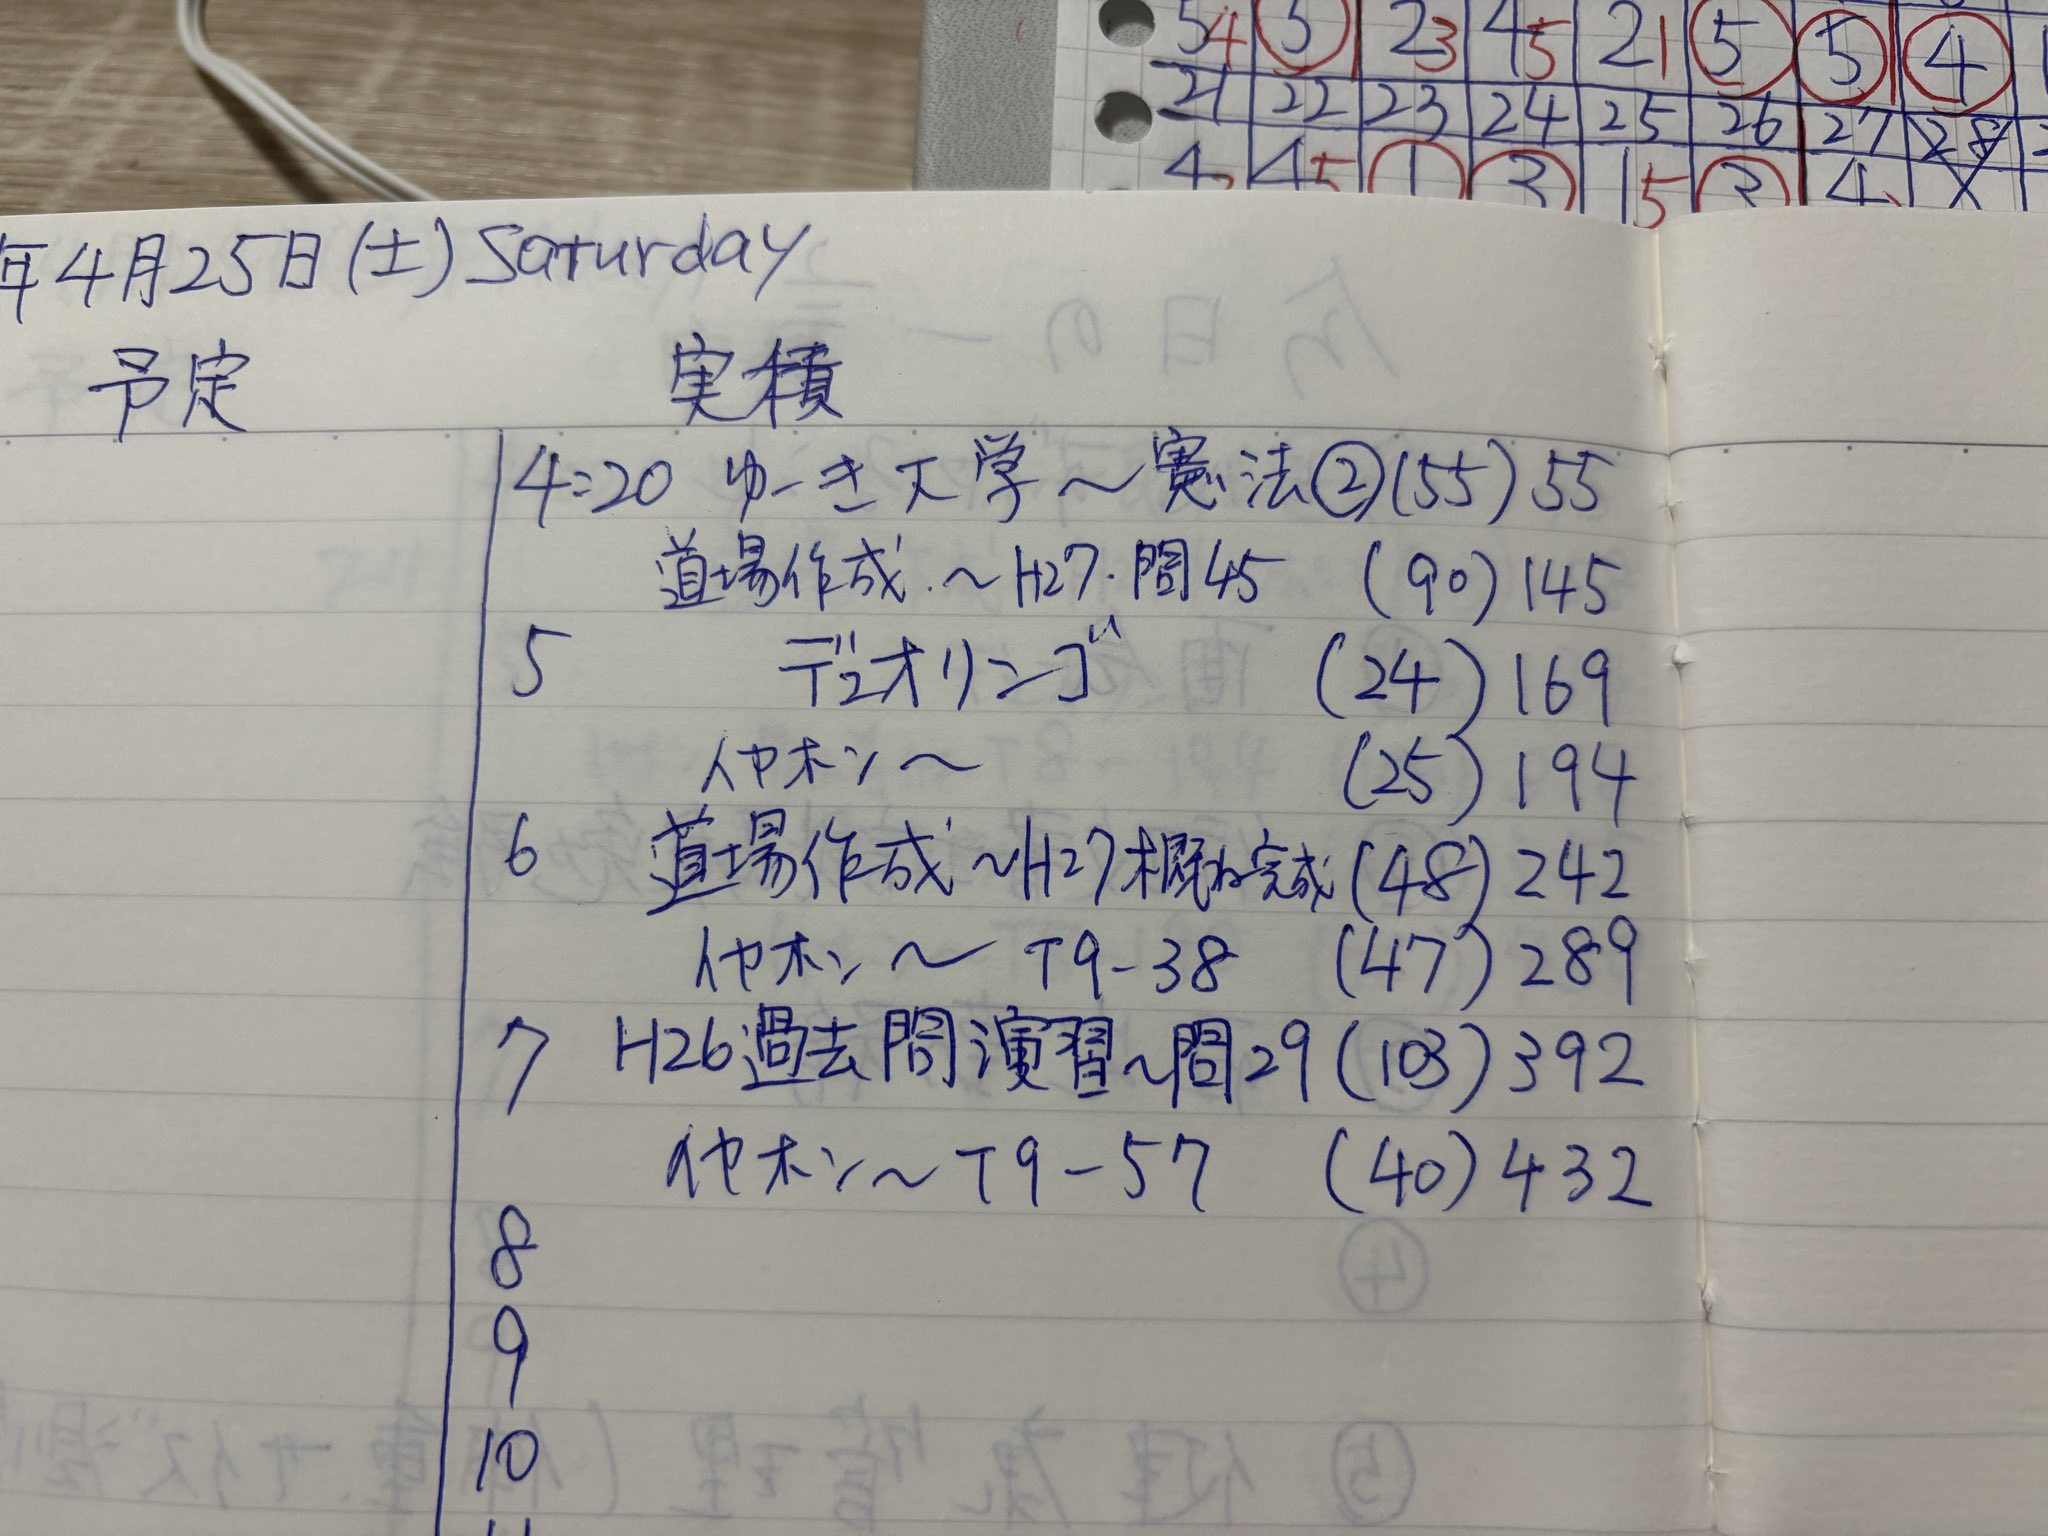 54 5 23 45 21 5 5 4
21 22 23 24 25 26 27 28
4 45 1 3 15 3 4
年4月25日(土) Saturday
予定 実積
4:20 ゆーき大学〜憲法②(55) 55
道場作成.〜H27.問45 (90) 145
5 デュオリンゴ (24) 169
イヤホン〜 (25) 194
6 道場作成〜H27概ね完成 (48) 242
イヤホン〜 T9-38 (47) 289
7 H26過去問演習〜問29 (103) 392
イヤホン〜T9-57 (40) 432
8
9
10